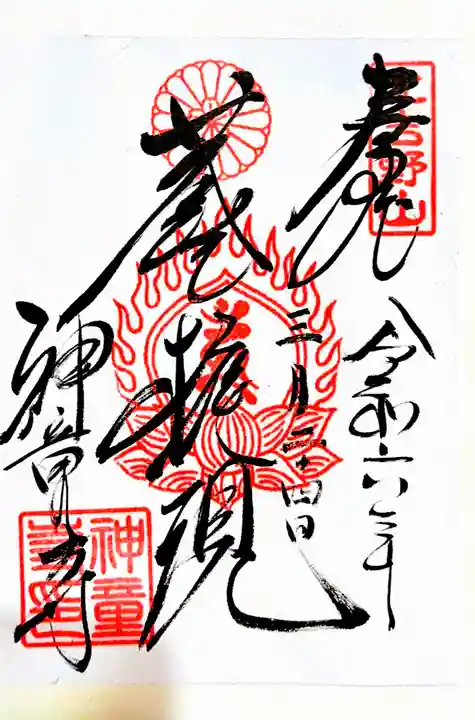 奉拝
令和六年
三月二十四日
蔵王権現
神童寺
吉野山
神童